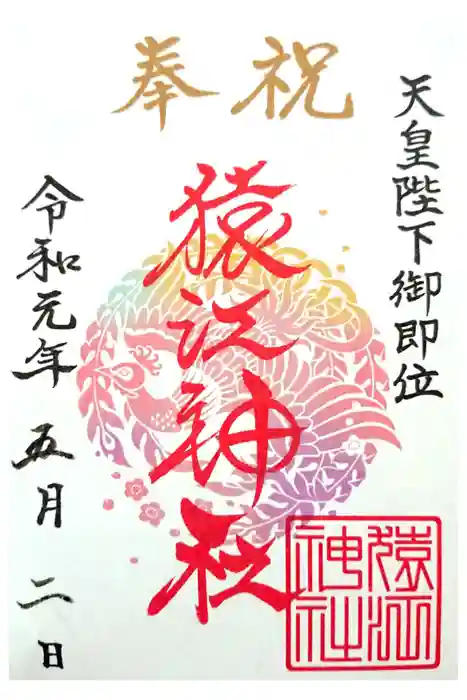 奉祝
天皇陛下御即位
猿江神社
令和元年 五月 二日
猿江神社